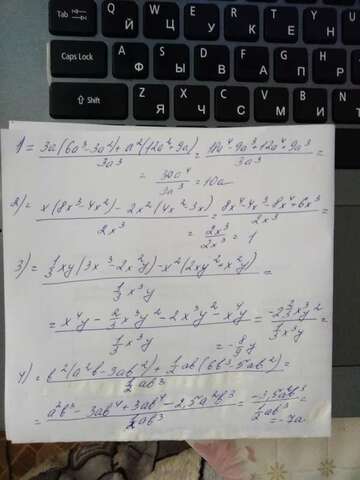 Tab Й Ц У К Е Н
Caps Lock Ф Ы В А П Р
Shift Я Ч С М И Т
1 = 3a(6a³-3a²)+a²(12a²+9a) / 3a³ = 18a⁴-9a³+12a⁴+9a³ / 3a³ =
= 30a⁴ / 3a³ = 10a
2) = x(8x³-4x²) - 2x²(4x²-3x) / 2x³ = 8x⁴-4x³-8x⁴+6x³ / 2x³ =
= 2x³ / 2x³ = 1
3) = 1/3 xy(3x³-2x²y)-x²(2xy²+x²y) / 1/3 x³y =
= x⁴y - 2/3 x³y² - 2x³y² - x⁴y / 1/3 x³y = -2 2/3 x³y² / 1/3 x³y =
= -8/9 y
4) = b²(a²b-3ab²)+1/2 ab(6b³-5ab²) / 1/2 ab³ =
= a²b³ - 3ab⁴ + 3ab⁴ - 2,5a²b³ / 1/2 ab³ = -3,5a²b³ / 1/2 ab³ =
= -7a